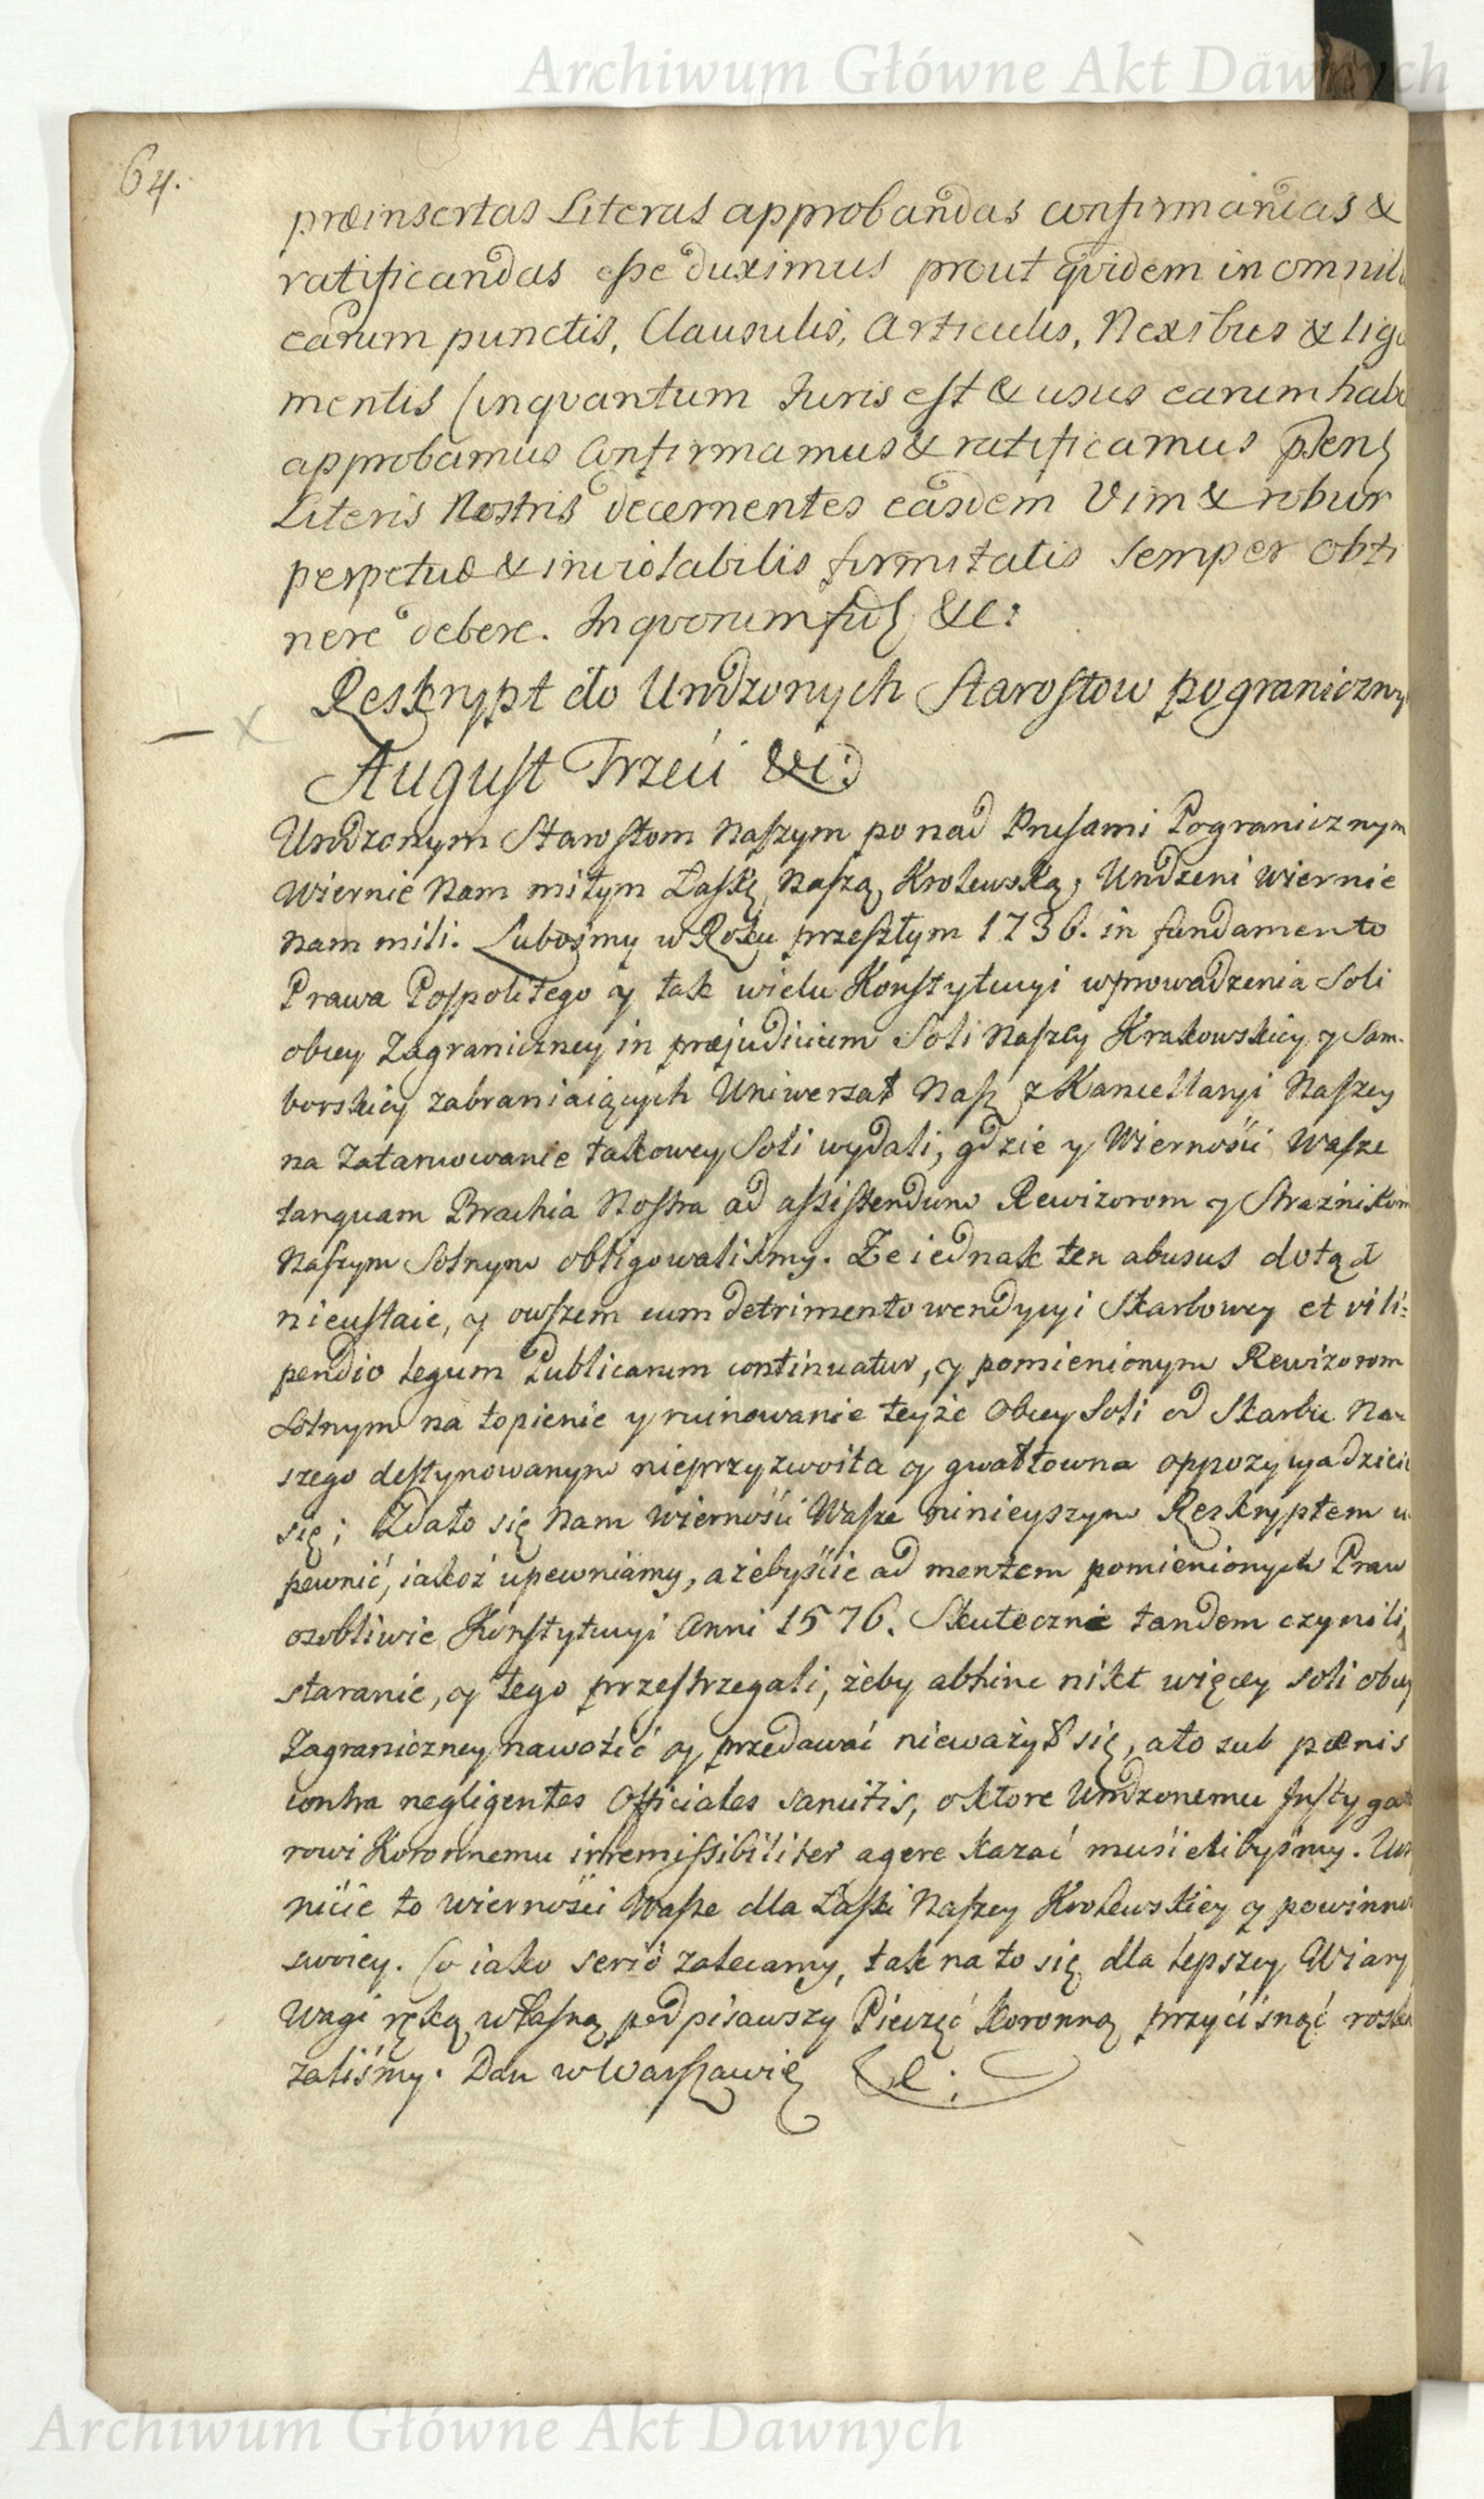 Archiwum Główne Akt Dawnych
64.
præinsertas Literas approbandas confirmandas &
ratificandas eſse duximus prout qvidem in omnib
earum punctis, Clausulis, Articulis, Nexibus & liga
mentis (inqvantum Iuris eſt & usus earum habe
approbamus Confirmamus & ratificamus
Literis Nostris decernentes easdem Vim & robur
perpetuæ & inviolabilis firmitatis Semper obti
nere debere. In qvorum fid &c:
Reskrypt do Urodzonych Staroſtow pograniczny
Auguſt Trzeci &c:
Urodzonym Staroſtom Naſzym ponad Pruſami Pogranicznym
Wiernie Nam miłym Łaſkę Naſzą Krolewską, Urodzeni Wiernie
Nam mili. Lubośmy w Roku przeſzłym 1736. in fundamento
Prawa Poſpolitego y tak wielu Konſtytucyi wprowadzenia Soli
obcey Zagraniczney in præjudicium Soli Naſzey Krakowskiey y Sam-
borskiey zabraniaiących Uniwersał Naſz z Kancellaryi Naſzey
na Zatamowanie takowey Soli wydali, gdzie y Wierności Waſze
tanquam Brachia Noſtra ad aſsiſtendum Rewizorom y Strażnikom
Naſzym Solnym obligowaliśmy. Że iednak ten abusus dotąd
nieuſtaie, y owſzem cum detrimento wendycyi Skarbowey et vili:
pendio legum Publicarum continuatur, y pomienionym Rewizorom
Solnym na topienie y ruinowanie teyże Obcey Soli od Skarbu Na-
szego deſtynowanym nieprzyzwoita y gwałtowna oppozycya dzieie
się; Zdało się Nam Wierności Waſze ninieyszym Reskryptem u
pewnić, iakoż upewniamy, ażebyście ad mentem pomienionych Praw
osobliwie Konſtytucyi Anni 1576. Skutecznie tandem czynili
staranie, y tego przeſtrzegali, żeby abhinc nikt więcey soli obcey
Zagraniczney nawozić y przedawać nieważył się, a to sub pœnis
contra negligentes Officiales sancitis, o ktore Urodzonemu Inſtyga
rowi Koronnemu irremiſsibiliter agere kazać musielibyśmy. Uczy
nicie to wierności Waſze dla Łaſki Naſzey Krolewskiey y powinno
swoiey. Co iako serio zalecamy, tak na to się dla lepszey Wiary
Wagi ręką własną podpisawszy Pieczęć Koronną przycisnąć roska
zaliśmy. Dan w Warſzawie &c:
Archiwum Główne Akt Dawnych